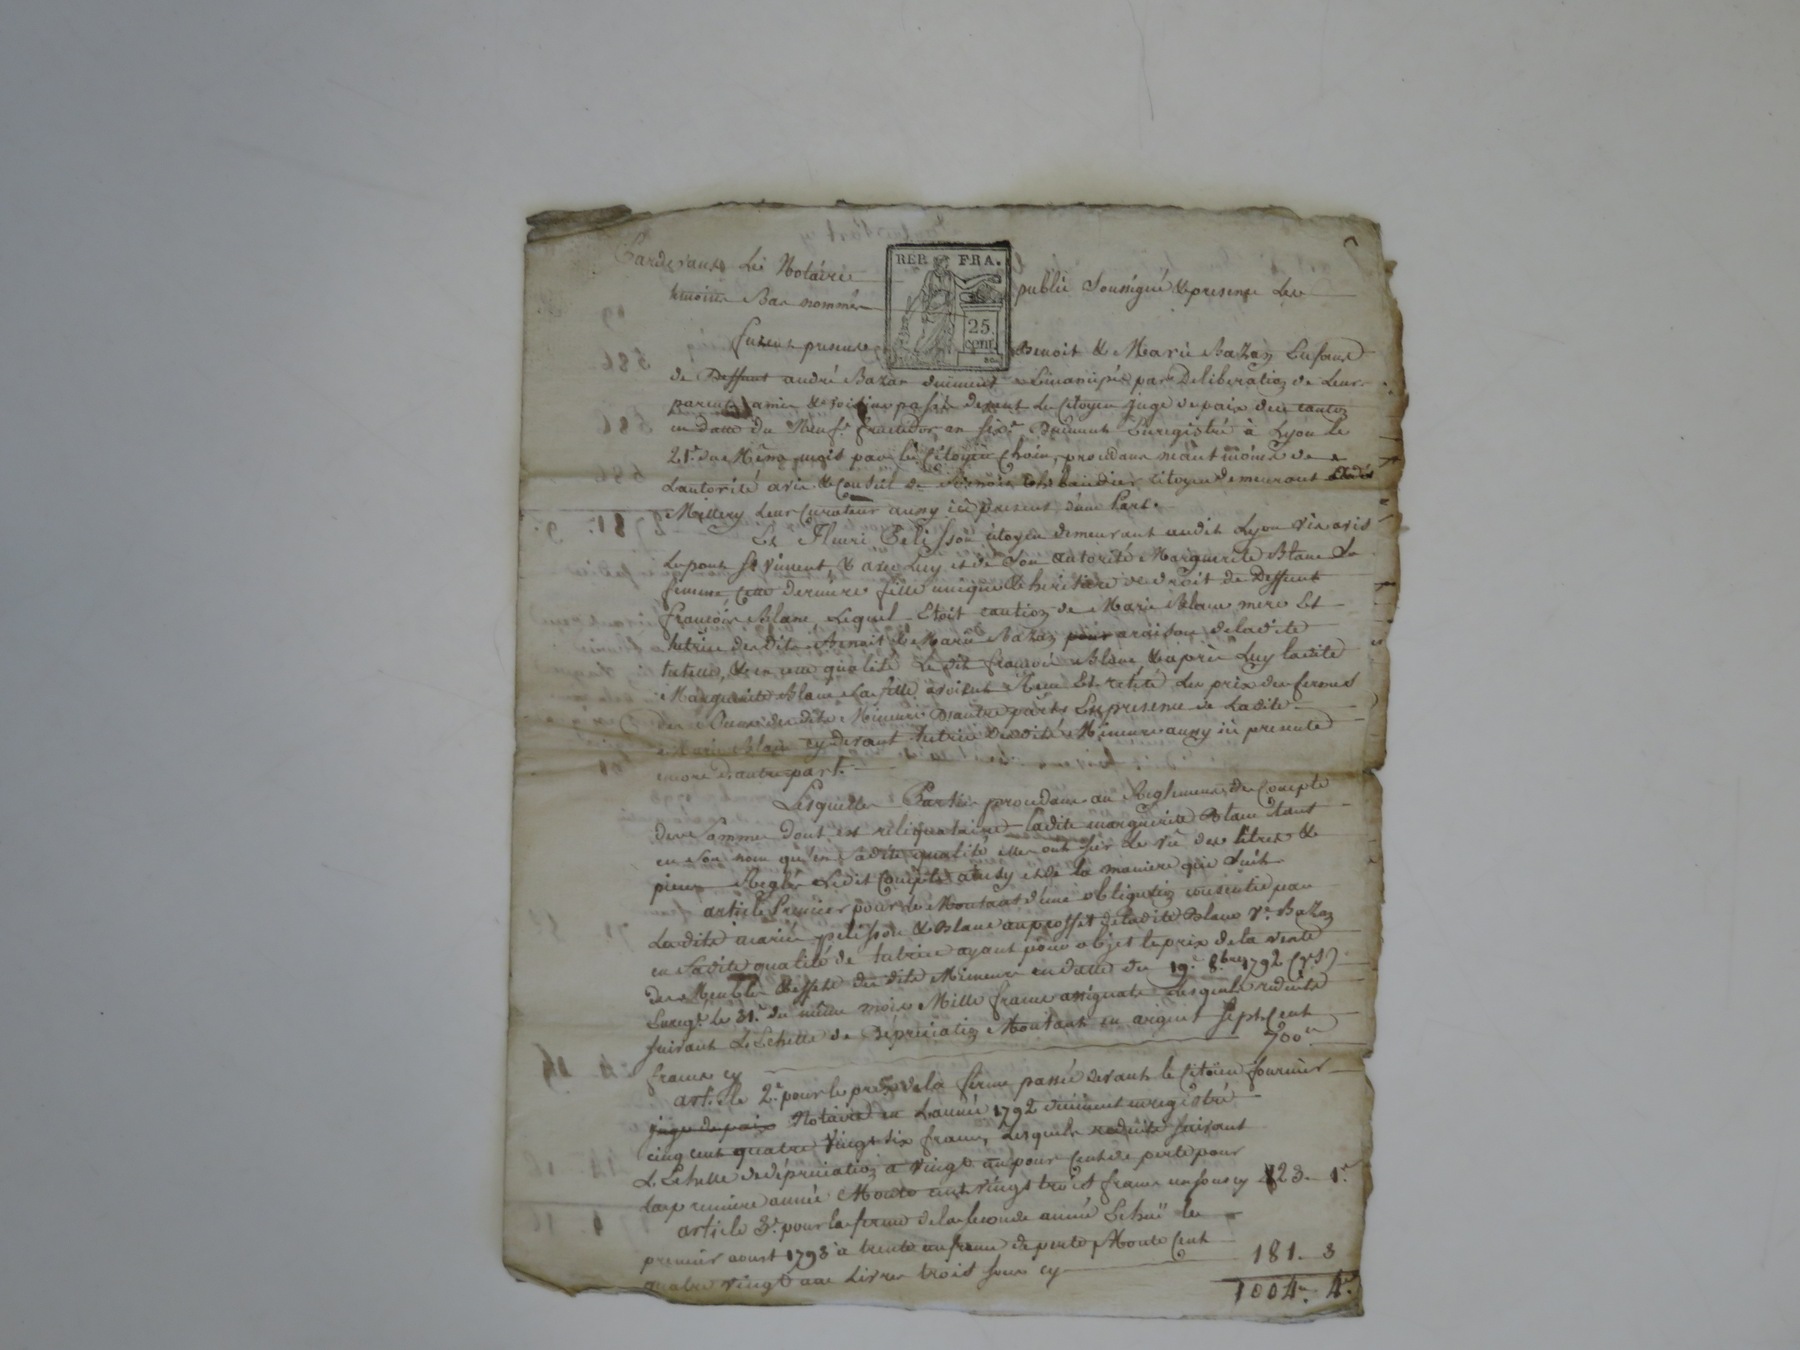 Pardevant Le Notaire public Soussigné & presence Les
temoins Bas nommés
REP. FRA.
25. cent.
furent presents Benoit & Marie Bazan Enfans
de Deffunt andré Bazan duement Emancipés par Deliberation de Leurs
parents amis & voisins passée devant Le Citoyen Juge de paix du canton
en datte du Neuf. fructidor an six.e Duement Enregistré à Lyon le
21.e du Même mois par le Citoyen Choin, procedans neantmoins de
L'autorité avis & Conseil de citoyen demeurant
Millery Leur Curateur aussy ici present, d'une Part.
Et Fleuri Pelisson citoyen demeurant audit Lyon vis avis
Le pont St Vincent, & avec Luy et de Son autorité Marguerite Blanc Sa
femme, cette derniere fille unique & heritiere de droit de Deffunt
François Blanc, Lequel Etoit caution de Marie Blanc mere Et
tutrice desdits Benoit & Marie Bazan pour araison de ladite
tutelle, & en cette qualité Le dit François Blanc, & après Luy ladite
Marguerite Blanc Sa fille avoient Recu Et retiré Les prix des fermes
des Biens desdits Mineurs D'autre part. En presence de Ladite
Marie Blanc cy devant tutrice desdits Mineurs aussy ici presente
encore d'autre part.
Lesquelles Parties procedans au Reglement de Compte
des Sommes dont est reliquataire ladite marguerite Blanc tant
en Son nom qu'en Sadite qualité elles ont sur Le Vû des titres &
pieces Reglé Ledit Compte ainsy et de la maniere que Suit
article Premier pour le Montant d'une obligation consentie par
Lesdits mariés pelisson & Blanc au proffit de ladite Blanc Ve. Bazan
en Sadite qualité de tutrice ayant pour objet le prix de la vente
des Meubles & effets desdits Mineurs en datte du 19.e 8.bre 1792 (v.s)
Enreg.é Le 31.e du même mois Mille francs assignats Lesquels reduits
suivant L'Echelle de Depreciation Montant en argent Sept Cent
francs cy 700.
article 2.e pour le prix de la ferme passée devant le Citoien fournier
juge de paix Notaire en L'année 1792 duement enregistré
cinq cent quatre vingt six francs, Lesquels reduits suivant
L'Echelle de depreciation a Vingt un pour Cent de perte pour
la premiere année Monte cent vingt trois francs un sous cy 123. 1.
article 3.e pour la ferme de la Seconde année Echuë le
premier aoust 1793 à trente un francs de perte, Monte Cent
quatre vingt une Livres trois sous cy 181. 3
1004. 4.